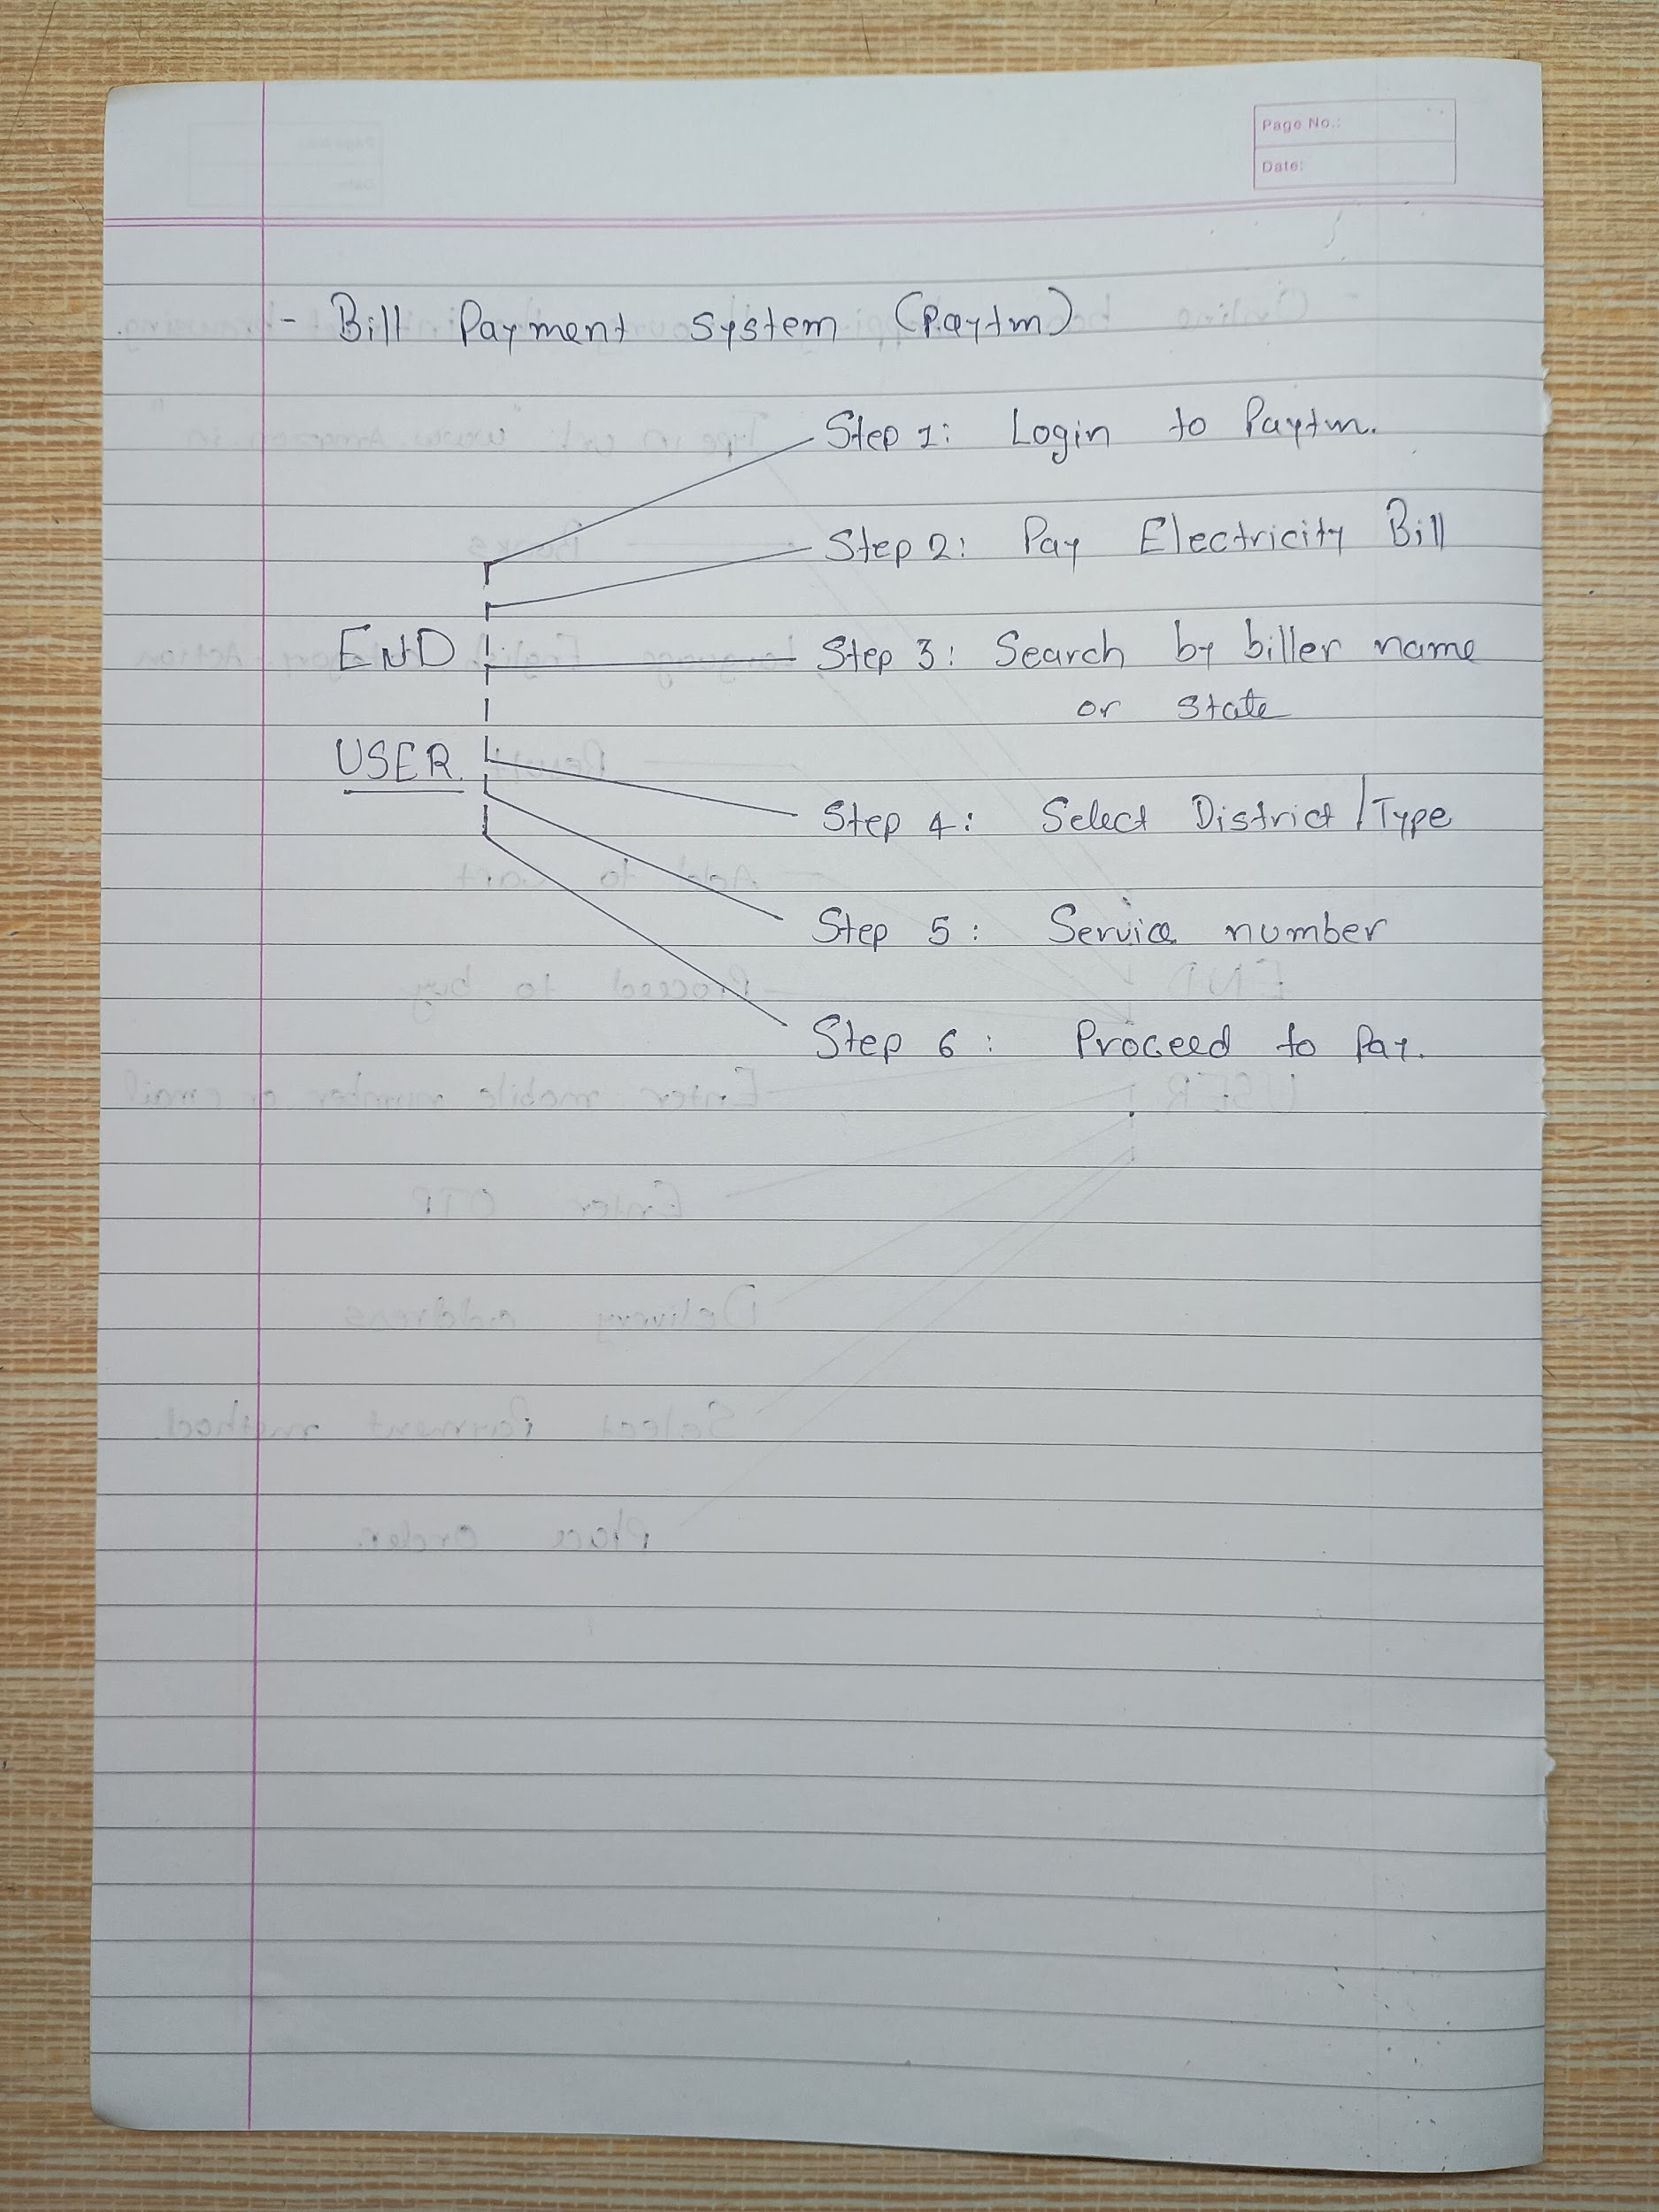 Page No.:
Date:
- Bill Payment system (Paytm)
Step 1: Login to Paytm.
Step 2: Pay Electricity Bill
END
Step 3: Search by biller name
or state
USER.
Step 4: Select District/Type
Step 5: Service number
Step 6: Proceed to Pay.